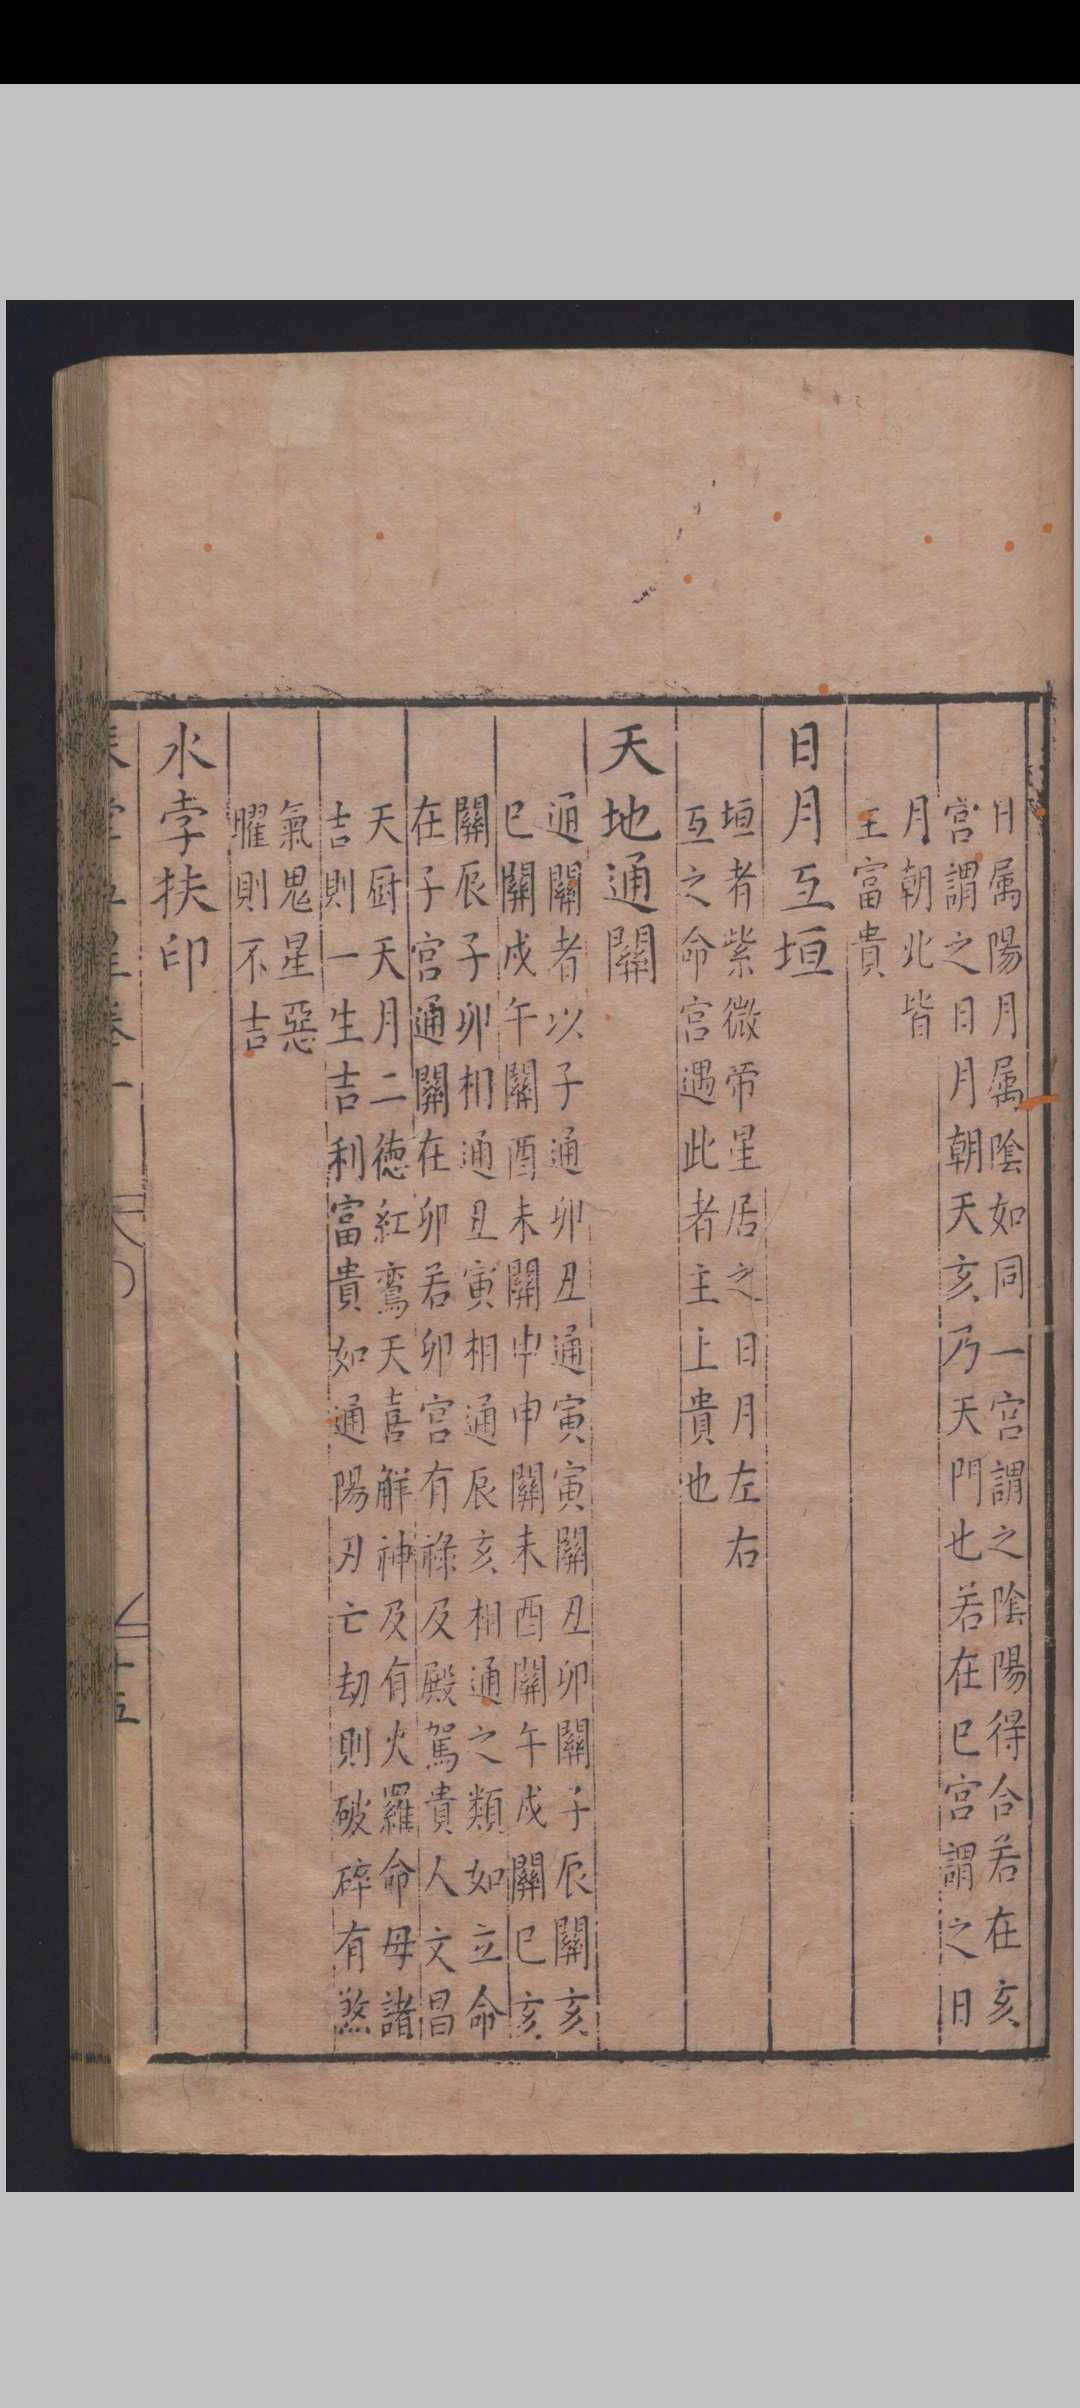 日属陽月属陰如同一宮謂之陰陽得合若在亥
宮謂之日月朝天亥乃天門也若在巳宮謂之日
月朝北皆
主富貴
日月互垣
垣者紫微帝星居之日月左右
互之命宮遇此者主上貴也
天地通關
通關者以子通卯丑通寅寅關丑卯關子辰關亥
巳關戌午關酉未關申申關未酉關午戌關巳亥
關辰子卯相通丑寅相通辰亥相通之類如立命
在子宮通關在卯若卯宮有祿及殿駕貴人文昌
天厨天月二德紅鸞天喜解神及有火羅命母諸
吉則一生吉利富貴如通陽刃亡刧則破碎有煞
氣鬼星惡
曜則不吉
水孛扶印